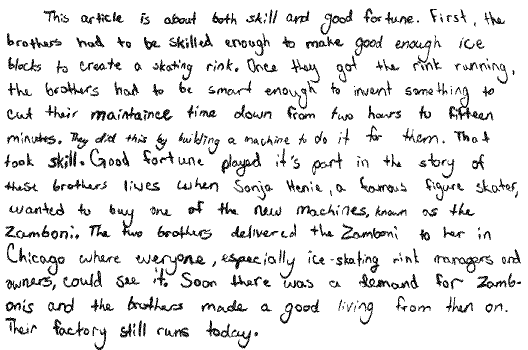 This article is about both skill and good fortune. First, the
brothers had to be skilled enough to make good enough ice
blocks to create a skating rink. Once they got the rink running,
the brothers had to be smart enough to invent something to
cut their maintaince time down from two hours to fifteen
minutes. They did this by building a machine to do it for them. That
took skill. Good fortune played it's part in the story of
these brothers lives when Sonja Henie, a famous figure skater,
wanted to buy one of the new machines, known as the
Zamboni. The two brothers delivered the Zamboni to her in
Chicago where everyone, especially ice-skating rink managers and
owners, could see it. Soon there was a demand for Zamb-
onis and the brothers made a good living from then on.
Their factory still runs today.